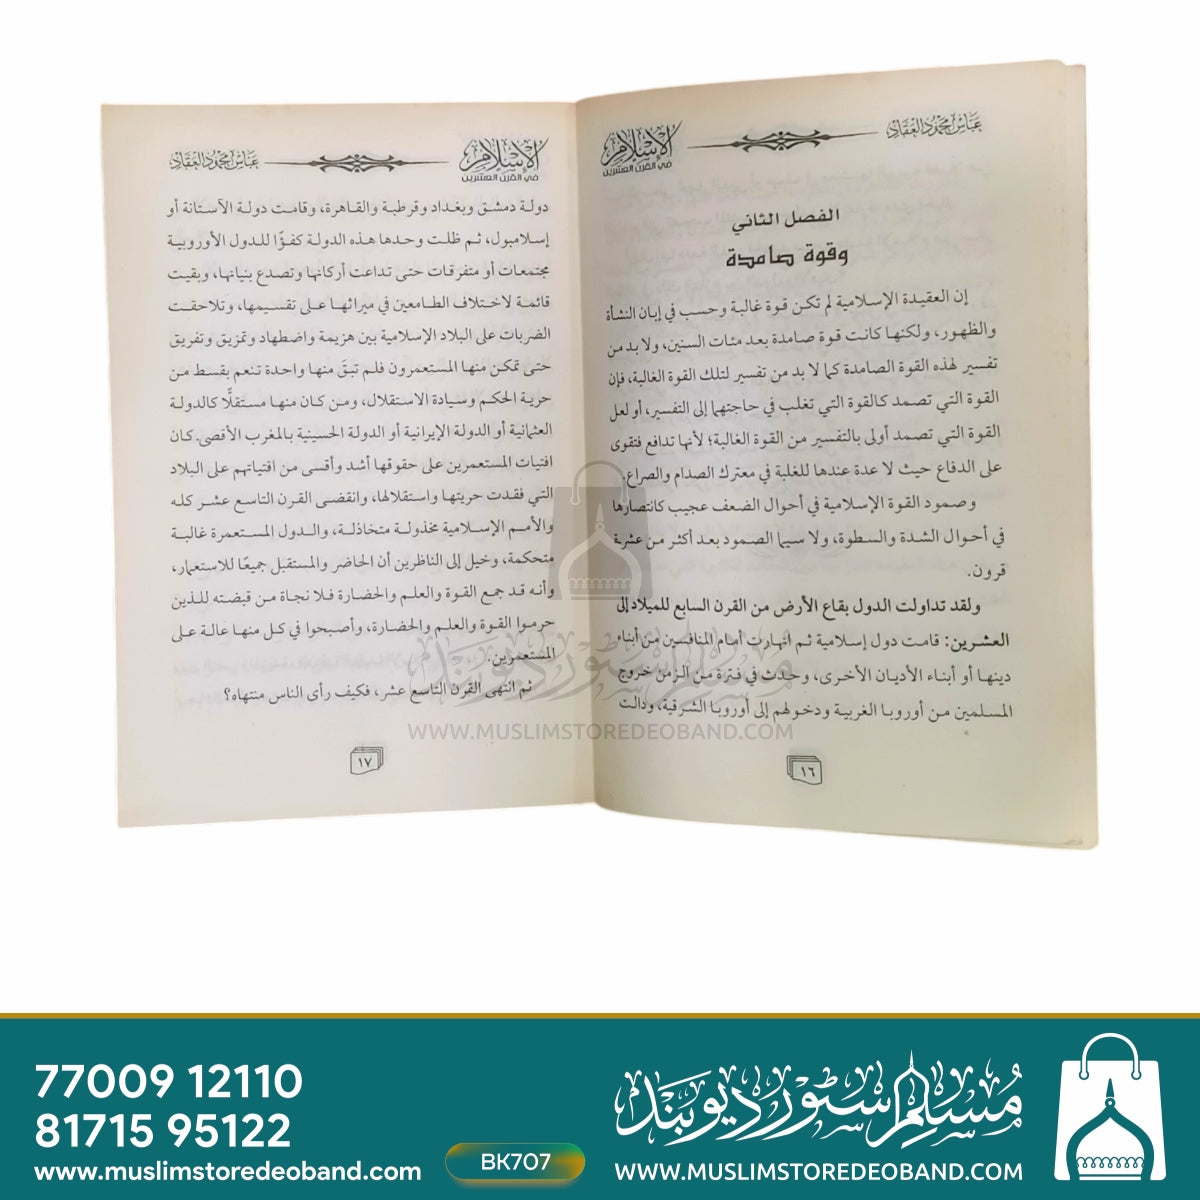 عباس محمود العقاد
الإسلام
في القرن العشرين
الفصل الثاني
وقوة صامدة
إن العقيدة الإسلامية لم تكن قوة غالبة وحسب في إبان النشأة
والظهور، ولكنها كانت قوة صامدة بعد مئات السنين، ولا بد من
تفسير لهذه القوة الصامدة كما لا بد من تفسير لتلك القوة الغالبة، فإن
القوة التي تصمد كالقوة التي تغلب في حاجتهما إلى التفسير، أو لعل
القوة التي تصمد أولى بالتفسير من القوة الغالبة؛ لأنها تدافع فتقوى
على الدفاع حيث لا عدة عندها للغلبة في معترك الصدام والصراع.
وصمود القوة الإسلامية في أحوال الضعف عجيب كانتصارها
في أحوال الشدة والسطوة، ولا سيما الصمود بعد أكثر من عشرة
قرون.
ولقد تداولت الدول بقاع الأرض من القرن السابع للميلاد إلى
العشرين: قامت دول إسلامية ثم انهارت أمام المنافسين من أبناء
دينها أو أبناء الأديان الأخرى، وحدث في فترة من الزمن خروج
المسلمين من أوروبا الغربية ودخولهم إلى أوروبا الشرقية، ودالت
١٦
الإسلام
في القرن العشرين
عباس محمود العقاد
دولة دمشق وبغداد وقرطبة والقاهرة، وقامت دولة الآستانة أو
إسلامبول، ثم ظلت وحدها هذه الدولة كفؤًا للدول الأوروبية
مجتمعات أو متفرقات حتى تداعت أركانها وتصدع بنيانها، وبقيت
قائمة لاختلاف الطامعين في ميراثها على تقسيمها، وتلاحقت
الضربات على البلاد الإسلامية بين هزيمة واضطهاد وتمزيق وتفريق
حتى تمكن منها المستعمرون فلم تبقَ منها واحدة تنعم بقسط من
حرية الحكم وسيادة الاستقلال، ومن كان منها مستقلًّا كالدولة
العثمانية أو الدولة الإيرانية أو الدولة الحسينية بالمغرب الأقصى كان
افتيات المستعمرين على حقوقها أشد وأقسى من افتياتهم على البلاد
التي فقدت حريتها واستقلالها، وانقضى القرن التاسع عشر كله
والأمم الإسلامية مخذولة متخاذلة، والدول المستعمرة غالبة
متحكمة، وخيل إلى الناظرين أن الحاضر والمستقبل جميعًا للاستعمار،
وأنه قد جمع القوة والعلم والحضارة فلا نجاة من قبضته للذين
حرموا القوة والعلم والحضارة، وأصبحوا في كل منها عالة على
المستعمرين.
ثم انتهى القرن التاسع عشر، فكيف رأى الناس منتهاه؟
١٧
مسلم سٹور دیوبند
WWW.MUSLIMSTOREDEOBAND.COM
77009 12110
81715 95122
www.muslimstoredeoband.com
BK707
مسلم سٹور دیوبند
WWW.MUSLIMSTOREDEOBAND.COM